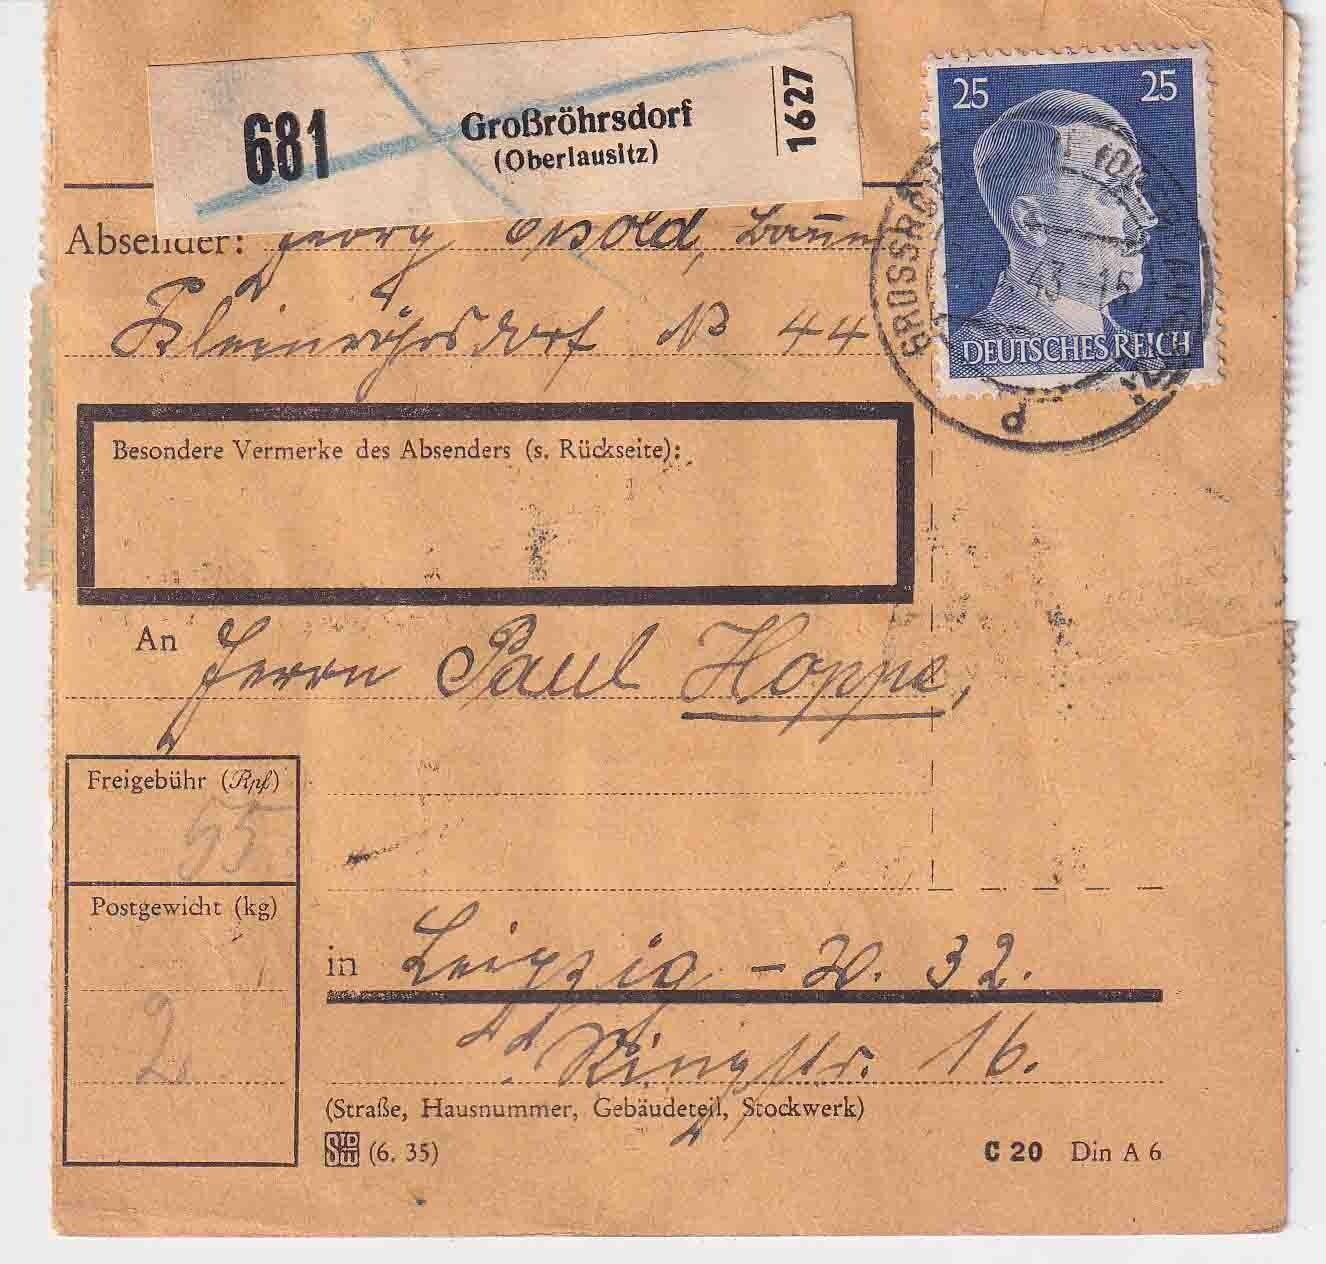 681
Großröhrsdorf
(Oberlausitz)
1627
25 25
DEUTSCHES REICH
GROSSRÖ
43 16
d
Absender: Georg
Kleinröhrsdorf № 44
Besondere Vermerke des Absenders (s. Rückseite):
An Herrn Paul Hoppe,
Freigebühr (Rpf)
55
Postgewicht (kg)
2
in Leipzig - W. 32.
Ringstr. 16.
(Straße, Hausnummer, Gebäudeteil, Stockwerk)
(6. 35)
C 20 Din A 6